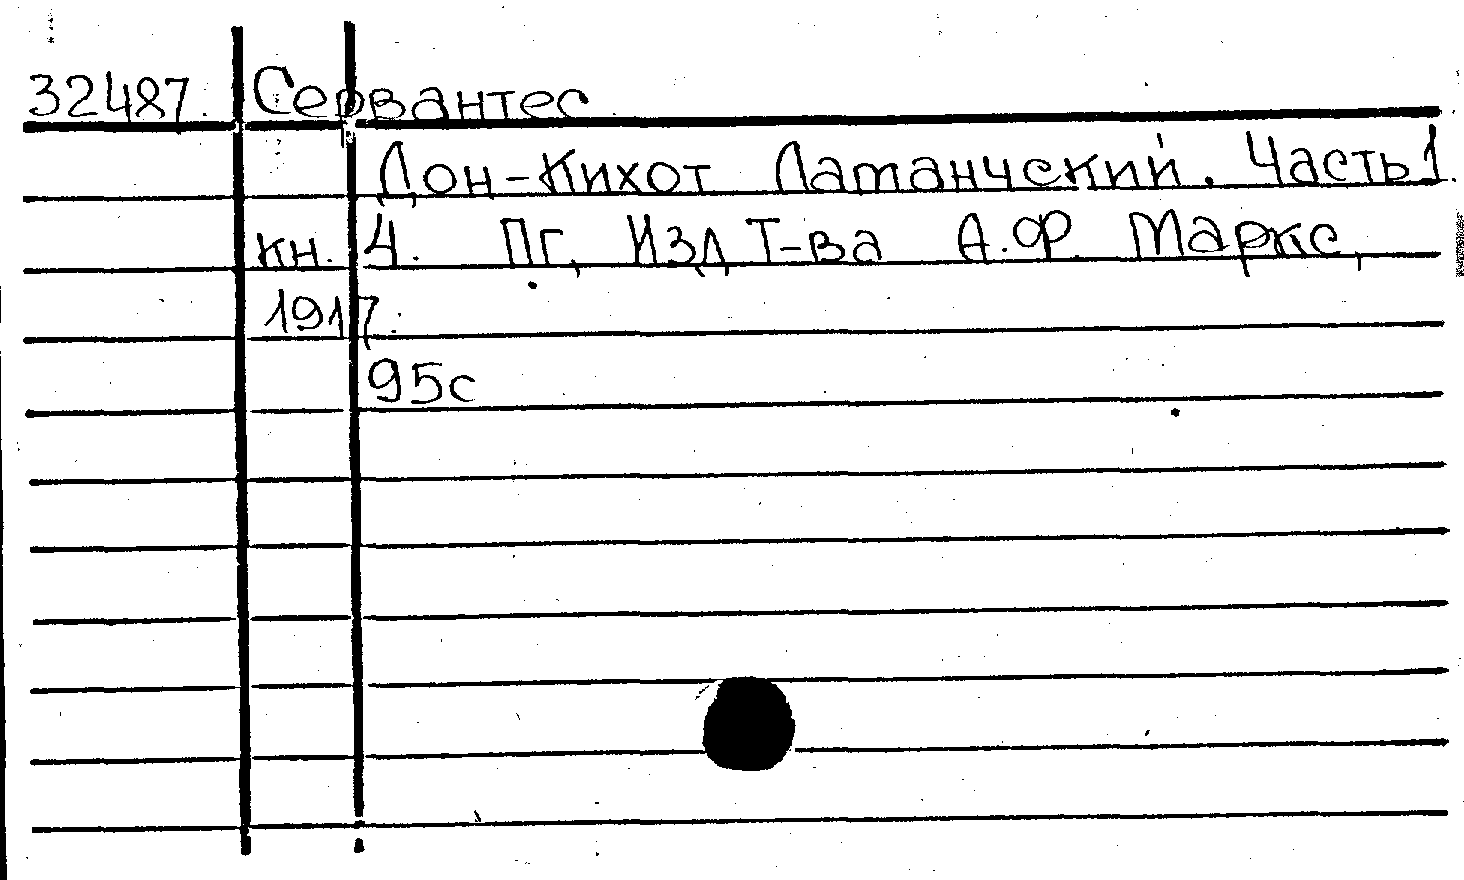 32487. Сервантес
Дон-Кихот Ламанчский. Часть 1.
кн. 4. Пг, Изд Т-ва А.Ф. Маркс,
1917.
95с